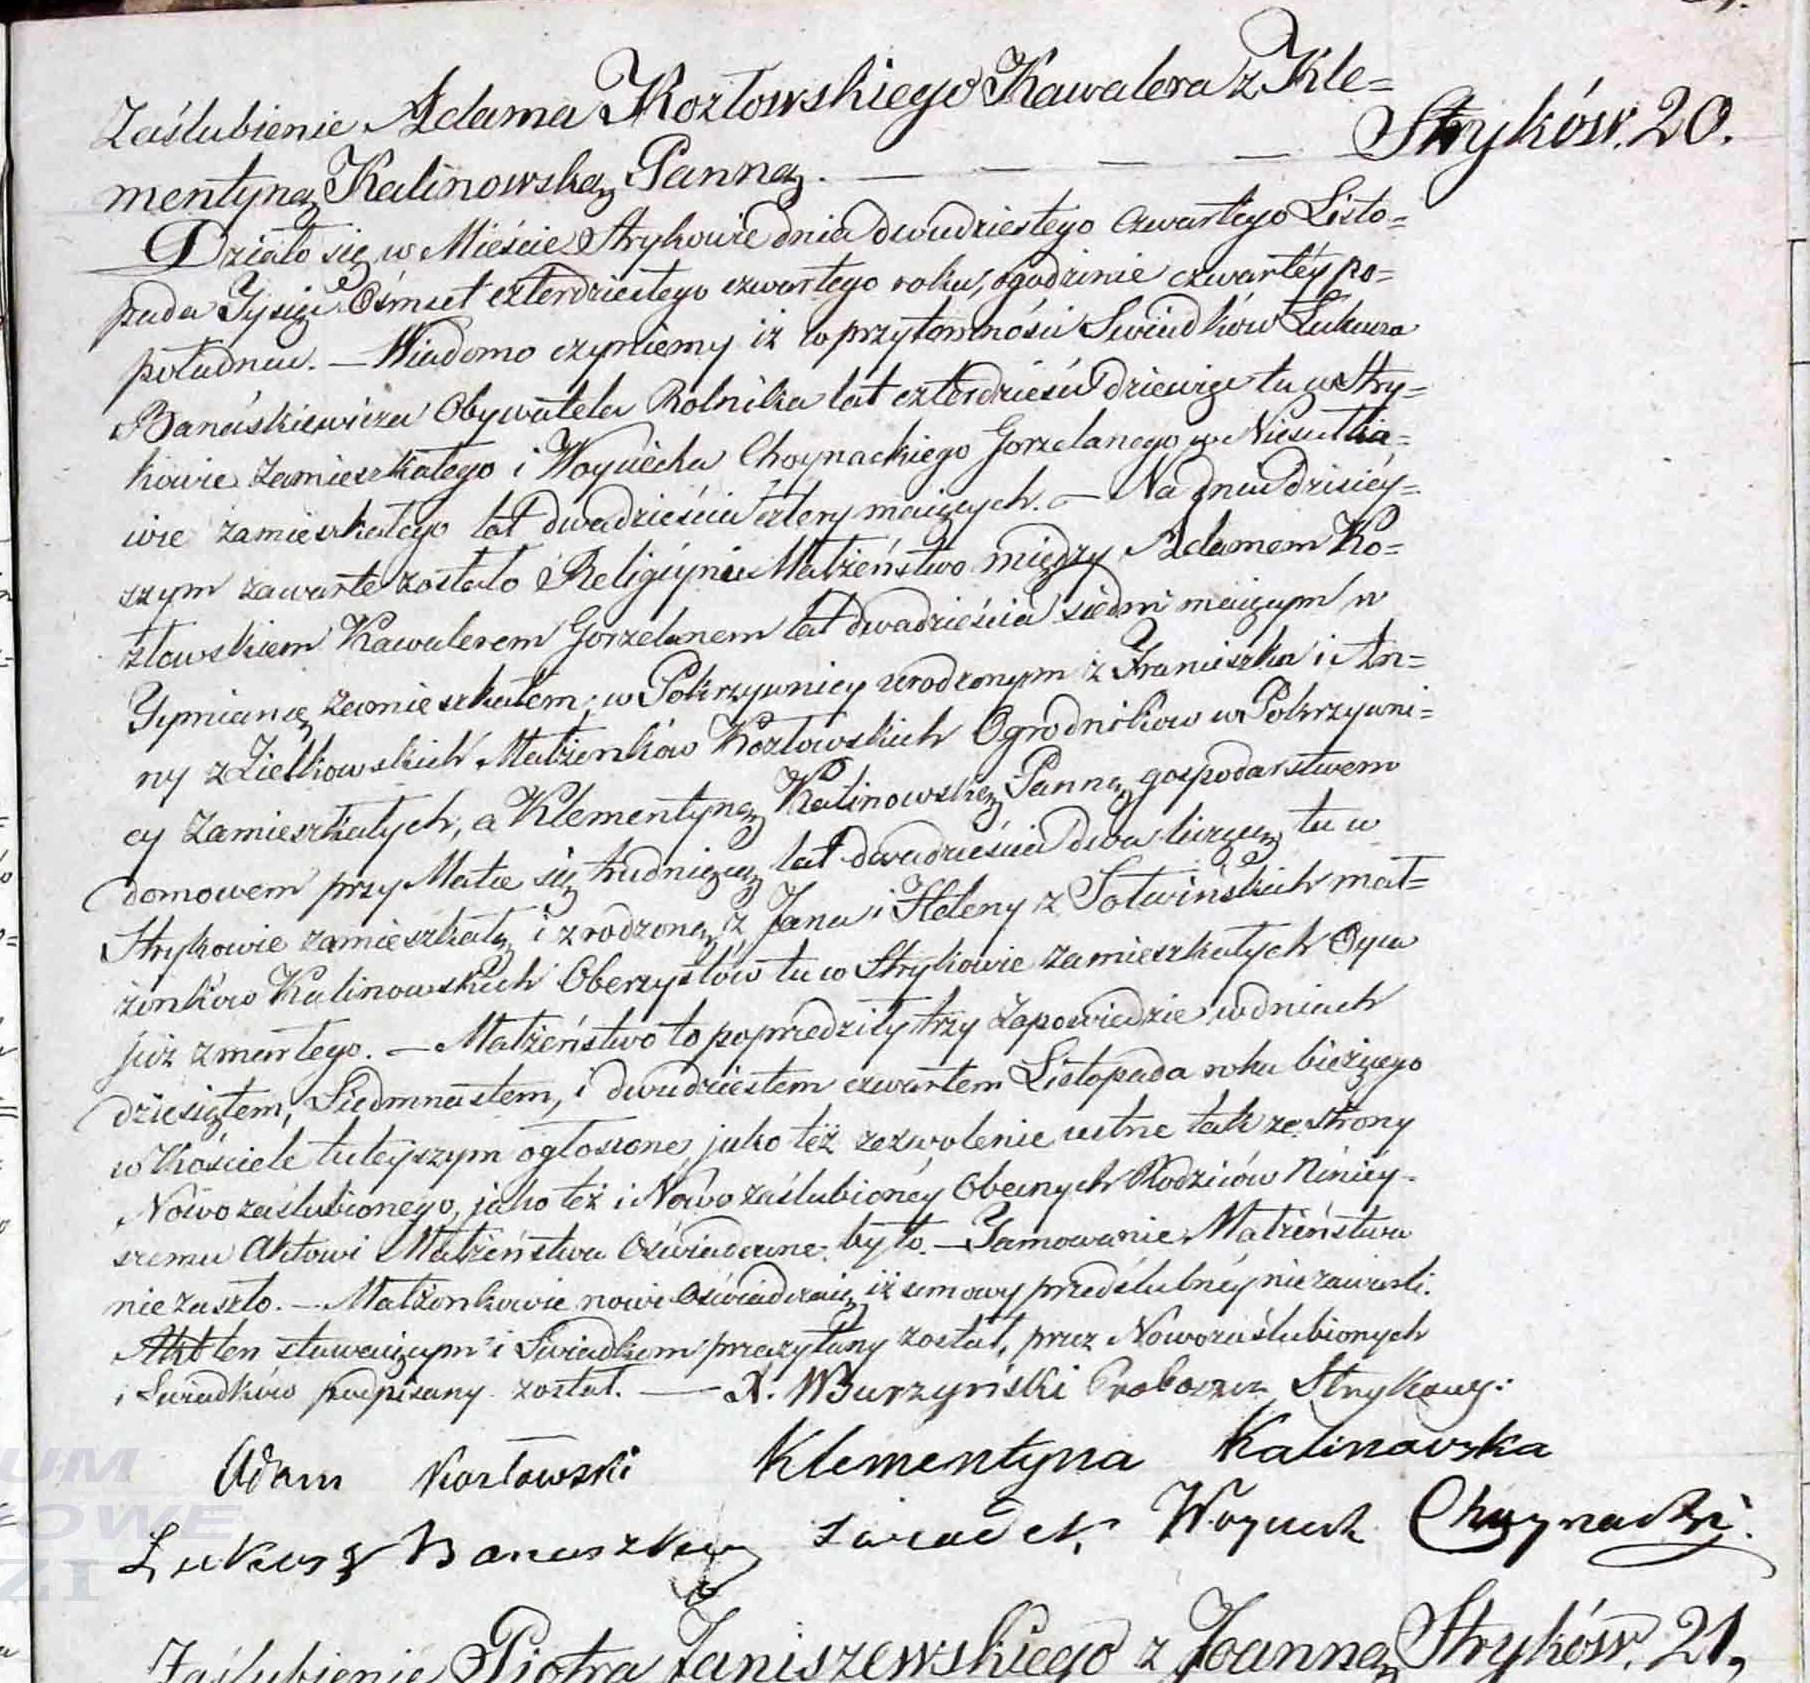 Zaślubienie Adama Kozłowskiego Kawalera z Kle=
mentyną Kalinowską Panną. — — — Stryków. 20.
Działo się w Mieście Strykowie dnia dwudziestego czwartego Listo=
pada Tysiąc Ośmset czterdziestego czwartego roku, o godzinie czwartéy po=
południu. — Wiadomo czyniemy iż w przytomności Swiadków Łukasza
Banaśkiewicza Obywatela Rolnika lat czterdzieści dziewięć tu w Stry=
kowie zamieszkałego i Woyciecha Choynackiego Gorzelanego w Niesułko=
wie zamieszkałego lat dwadzieścia cztery maiących. — Na dniu dzisiéy=
szym zawarte zostało Religiyne Małżeństwo między Adamem Ko=
złowskiem Kawalerem Gorzelanem lat dwadzieścia siedm maiącym w
Tymiance zamieszkałem; w Pokrzywnicy urodzonym z Franciszka i An=
ny z Ziełkowskich Małżonków Kozłowskich Ogrodników w Pokrzywni=
cy zamieszkałych, a Klementyną Kalinowską Panną, gospodarstwem
domowem przy Matce się trudniącą lat dwadzieścia dwa liczącą tu w
Strykowie zamieszkałą i zrodzoną z Jana i Heleny z Sotwińskich mał=
żonków Kalinowskich Oberzystów tu w Strykowie zamieszkałych Oyca
już zmarłego. — Małżeństwo to poprzedziły trzy Zapowiedzie w dniach
dziesiątem, Siedmnastem, i dwudziestem czwartem Listopada roku bieżącego
w Kościele tuteyszym ogłoszone, jako też zezwolenie ustne tak ze strony
Nowo zaślubionego, jako też i Nowo zaślubionéy Obecnych Rodziców Niniéy-
szemu Aktowi Małżeństwa Oświadczone było. — Tamowanie Małżeństwa
nie zaszło. — Małżonkowie nowi Oświadczaią iż umowy przedślubnéy nie zawarli.
Akt ten stawaiącym i Swiadkom przeczytany został, przez Nowozaślubionych
i Swiadków podpisany został. — X. WBurzyński Proboszcz Strykows:
Adam Kozłowski Klementyna Kalinowska
Łukasz Banaszkiewicz swiadek, Woyciech Choynacki.
Zaślubienie Piotra Janiszewskiego z Joanną Stryków. 21,